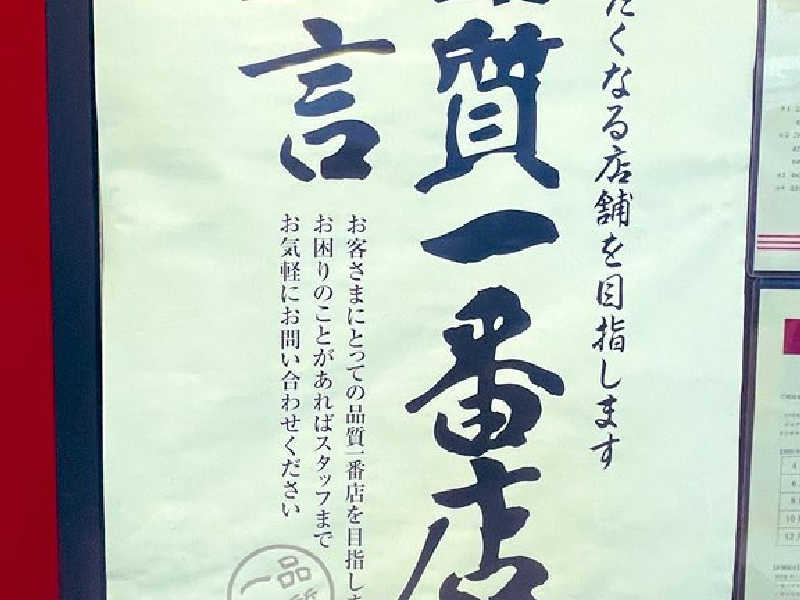 たくなる店舗を目指します
質一番店
言
お客さまにとっての品質一番店を目指しま
お困りのことがあればスタッフまで
お気軽にお問い合わせください
品
一